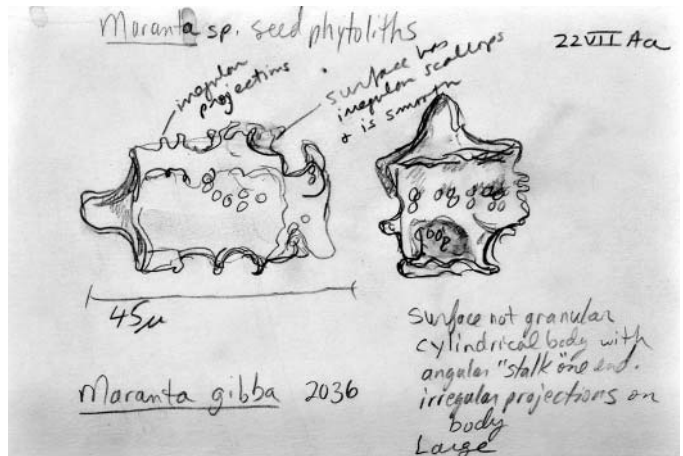 Maranta sp. seed phytoliths
22VII Aa
irregular
projections
surface has
irregular scallops
+ is smooth
45µ
Maranta gibba 2036
Surface not granular
cylindrical body with
angular "stalk" one end.
irregular projections on
body
Large